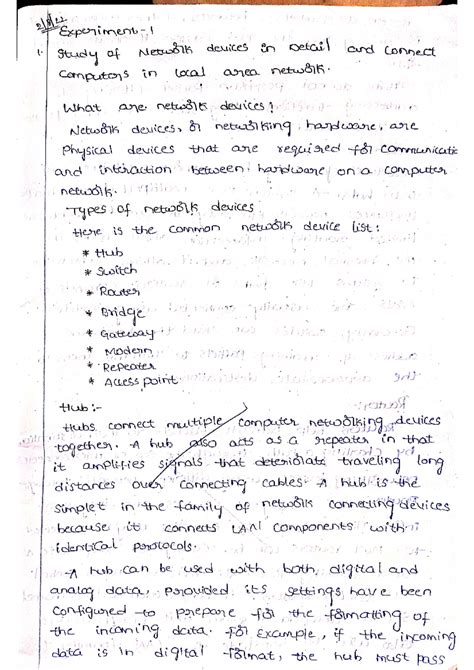 Experiment:-1
1. Study of Network devices in Detail and connect
Computors in local area network.
What are network devices?
Network devices, or networking hardware, are
Physical devices that are required for communicatic
and intraction between hardware on a computer
network.
Types of network devices
Here is the common network device list:
* Hub
* Switch
* Router
* Bridge
* Gateway
* Modern
* Repeater
* Access point
Hub:-
Hubs connect multiple computer networking devices
together. A hub also acts as a repeater in that
it amplifies signals that deteriolate traveling long
distances over connecting cables. A hub is the
simplet in the family of network connecting devices
because it connects LAN components with
identical protocols.
A hub can be used with both digital and
analog data, provided its settings have been
Configured to prepare for the formatting of
the incoming data. for Example, if the incoming
data is in digital format, the hub must pass